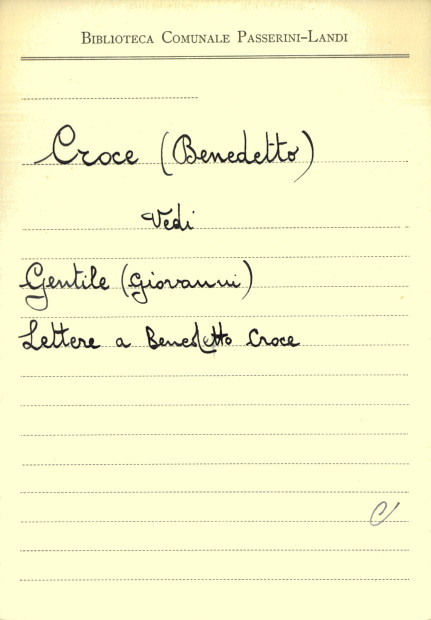 Biblioteca Comunale Passerini-Landi
Croce (Benedetto)
Vedi
Gentile (Giovanni)
Lettere a Benedetto Croce